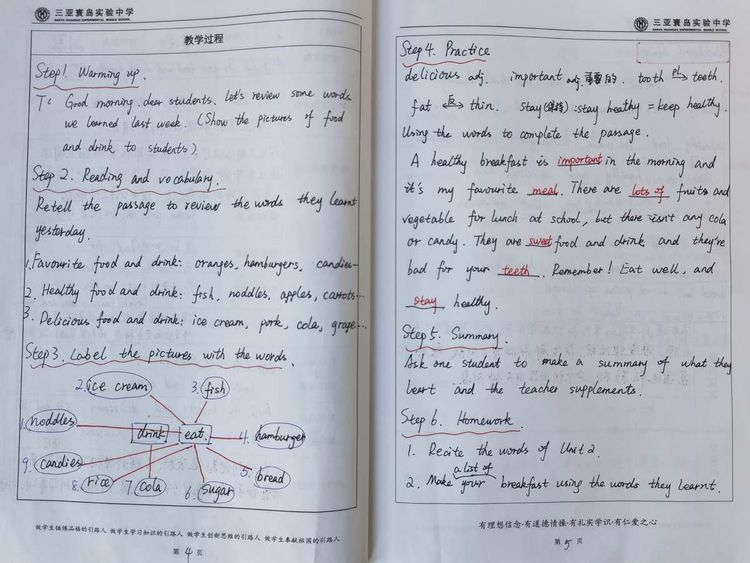 三亚寰岛实验中学
SANYA HUANDAO EXPERIMENTAL MIDDLE SCHOOL
教学过程
Step1. Warming up.
T: Good morning, dear students. Let's review some words
we learned last week. (Show the pictures of food
and drink to students).
Step 2. Reading and vocabulary.
Retell the passage to review the words they learnt
yesterday.
1. Favourite food and drink: oranges, hamburgers, candies...
2. Healthy food and drink: fish, noddles, apples, carrots...
3. Delicious food and drink: ice cream, pork, cola, grape...
Step3. Label the pictures with the words.
2. ice cream
3. fish
1. noddles
drink
eat
4. hamburger
9. candies
5. bread
8. rice
7. cola
6. sugar
做学生锤炼品格的引路人 做学生学习知识的引路人 做学生创新思维的引路人 做学生奉献祖国的引路人
第 4 页
三亚寰岛实验中学
SANYA HUANDAO EXPERIMENTAL MIDDLE SCHOOL
Step 4. Practice
delicious adj. important adj. 重要的. tooth pl→ teeth.
fat 反→ thin. stay(保持): stay heathy = keep healthy.
Using the words to complete the passage.
A healthy breakfast is important in the morning and
it's my favourite meal. There are lots of fruits and
vegetable for lunch at school, but there isn't any cola
or candy. They are sweet food and drink and they're
bad for your teeth. Remember! Eat well, and
stay healthy.
Step 5. Summary.
Ask one student to make a summary of what they
leart and the teacher supplements.
Step 6. Homework.
1. Recite the words of Unit 2.
a list of
2. Make your breakfast using the words they learnt.
有理想信念·有道德情操·有扎实学识·有仁爱之心
第 5 页